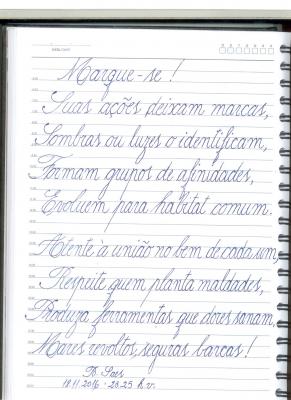 Marque-se!
Suas ações deixam marcas,
Sombras ou luzes o identificam,
Formam grupos de afinidades,
Evoluem para habitat comum.
Atente à união no bem de cada um,
Respeite quem planta maldades,
Produza ferramentas que dores sanam.
Mares revoltos, seguras barcas!
18.11.2016